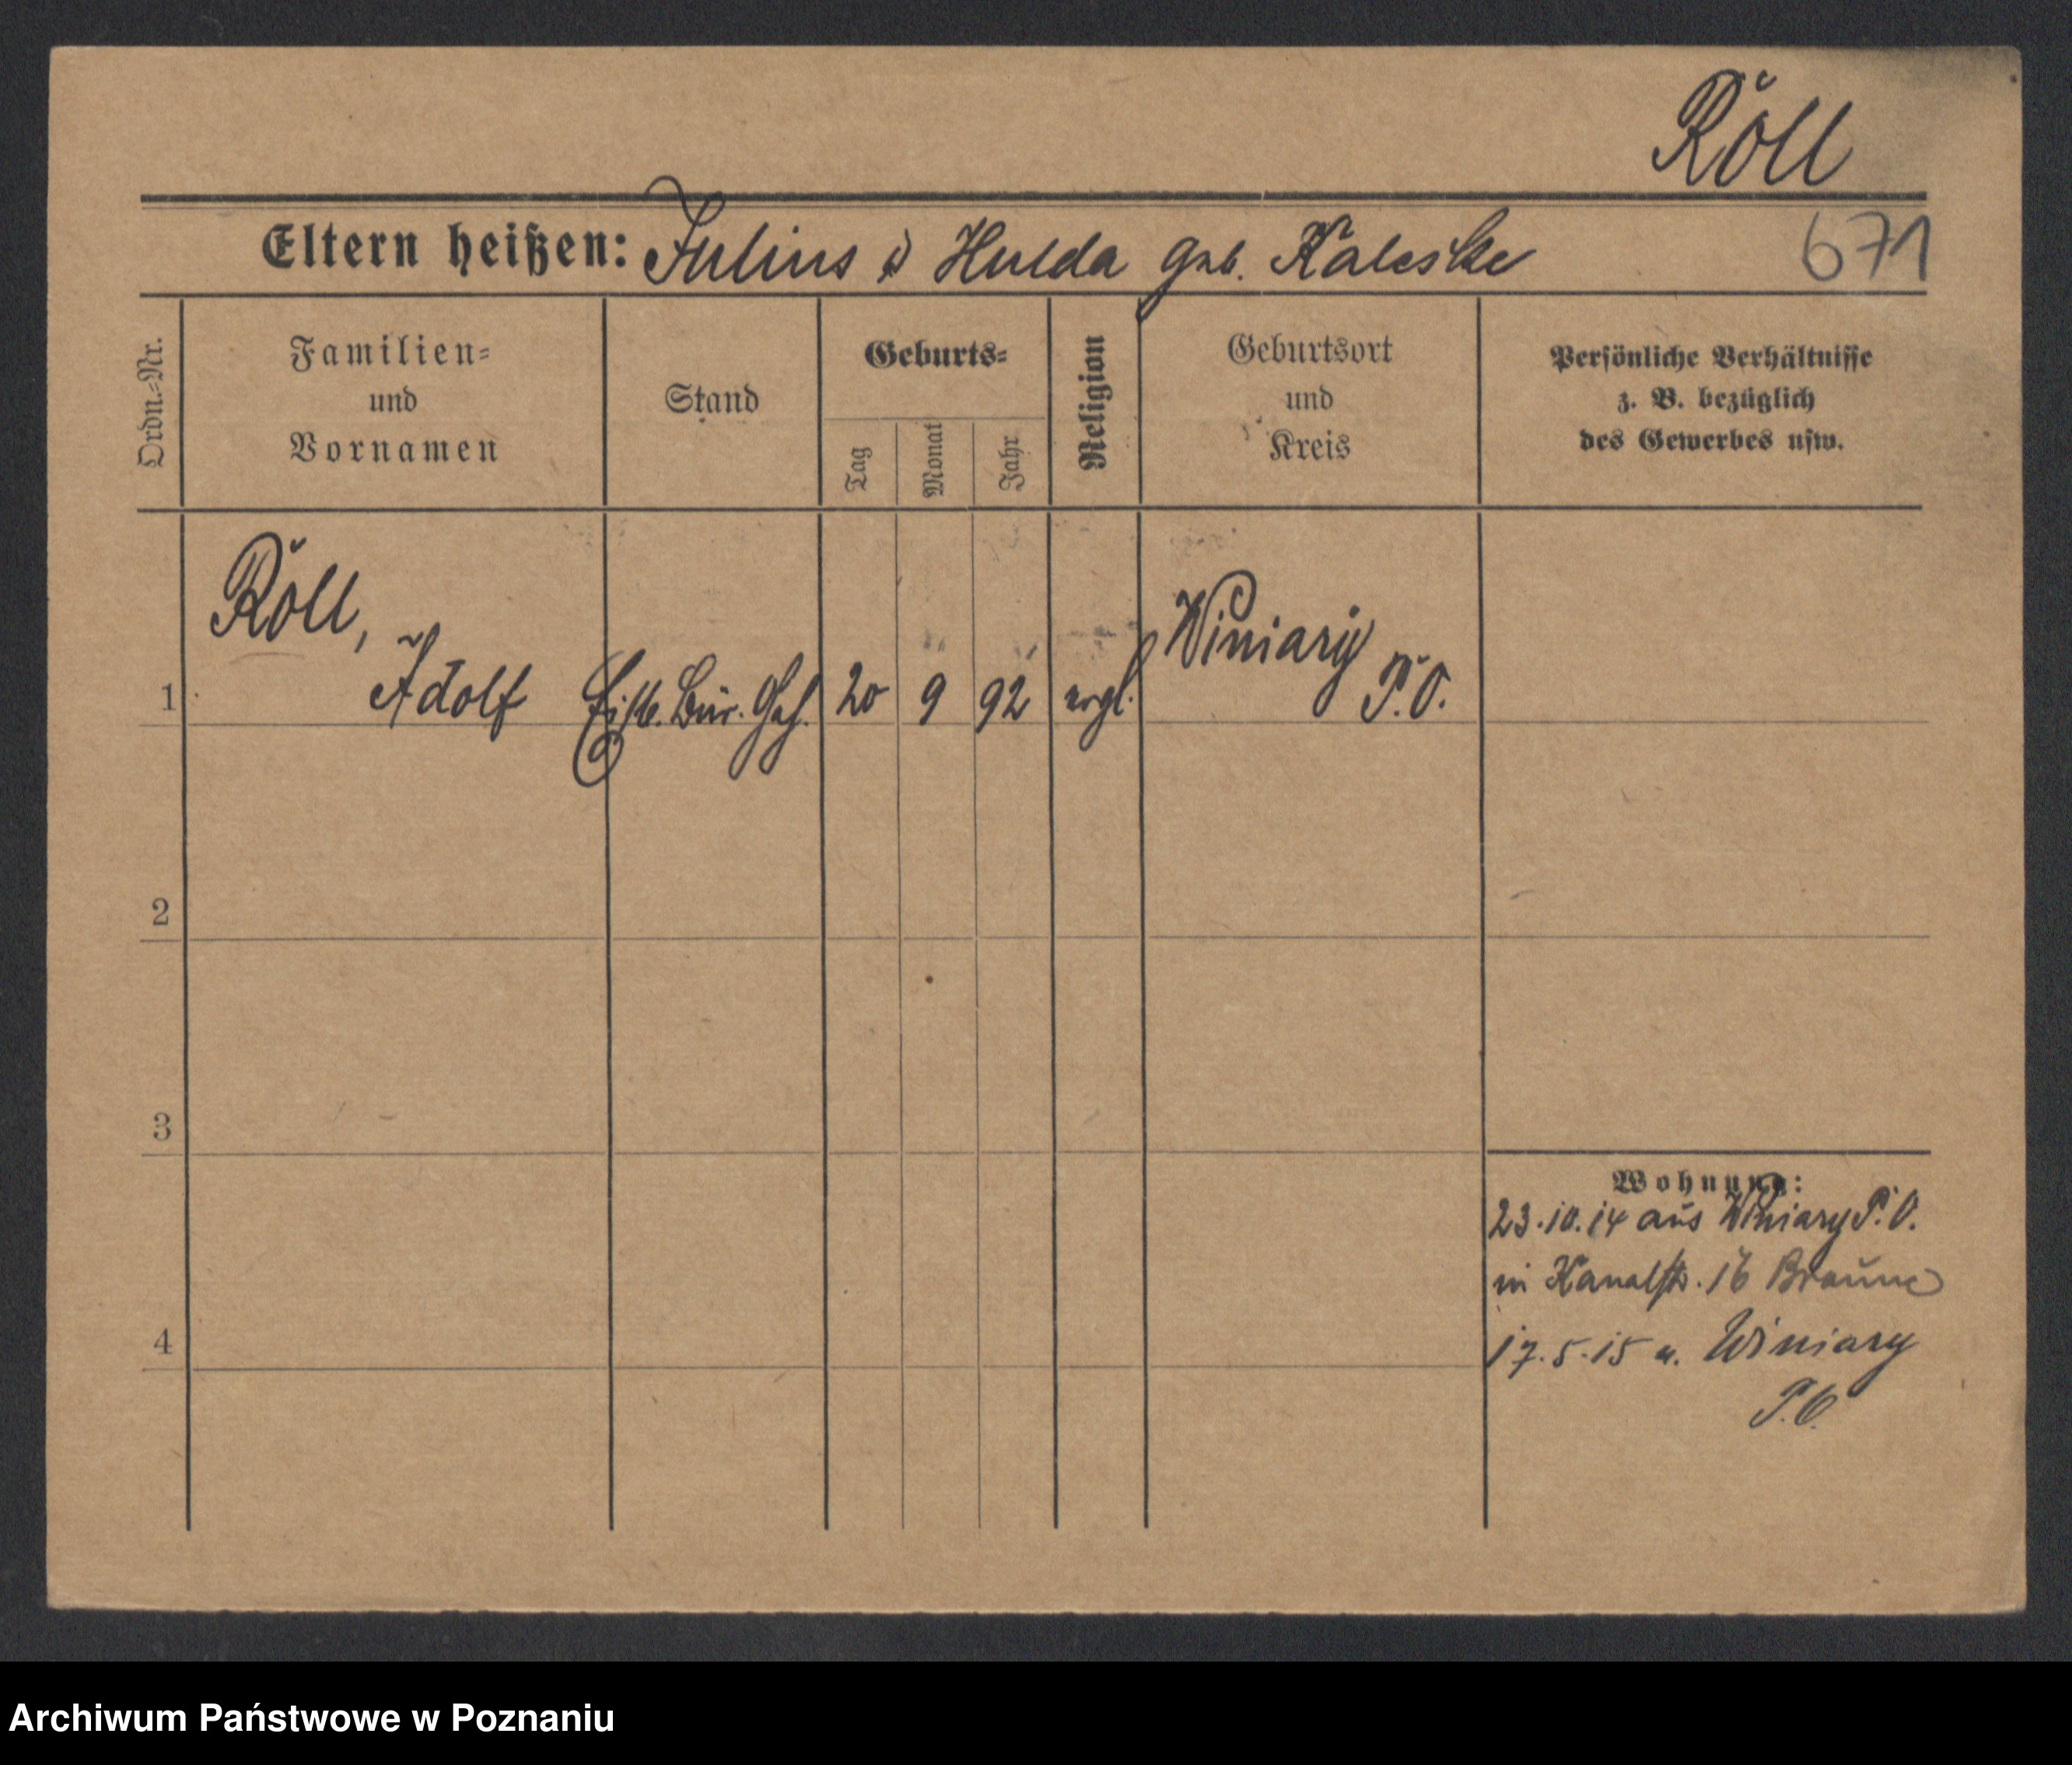 Röll
Eltern heißen: Julius & Hulda geb. Kaleske
671
Ordn.=Nr.
Familien=
und
Vornamen
Stand
Geburts=
Tag
Monat
Jahr
Religion
Geburtsort
und
Kreis
Persönliche Verhältnisse
z. B. bezüglich
des Gewerbes usw.
Röll,
1 Adolf Bür. Geh. 20 9 92 evgl. Winiary
P. O.
2
3
4
Wohnung:
23.10.14 aus Winiary P. O.
in Kanalstr. 16 Braune
17.5.15 n. Winiary
P. O.
Archiwum Państwowe w Poznaniu